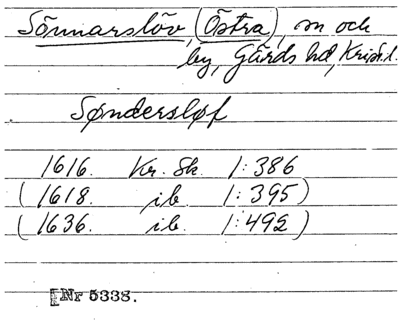 Sönnarslöv, (Östra), sn och
by, Gärds hd, Krist. l.
Søndersløf
1616. Kr. Sk. 1:386
(1618. ib. 1:395)
(1636. ib. 1:492)
Nr 5338.